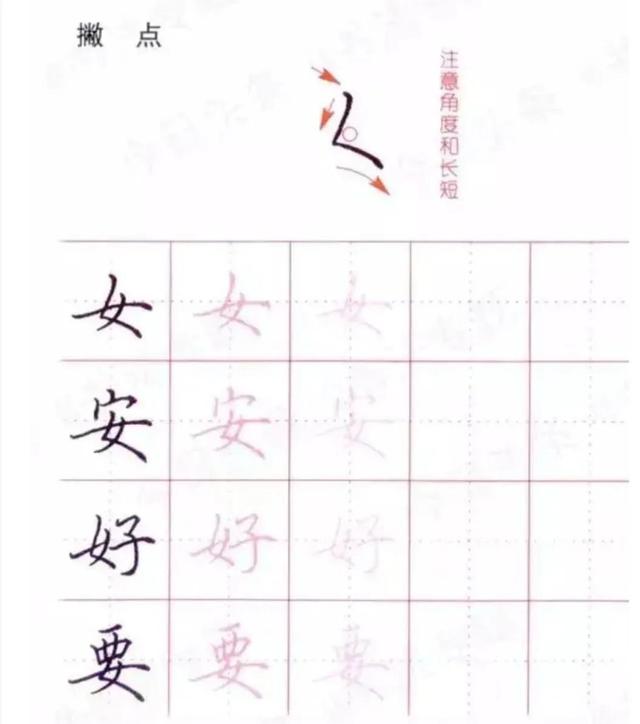 撇 点
注意角度和长短
女 女 女
安 安 安
好 好 好
要 要 要